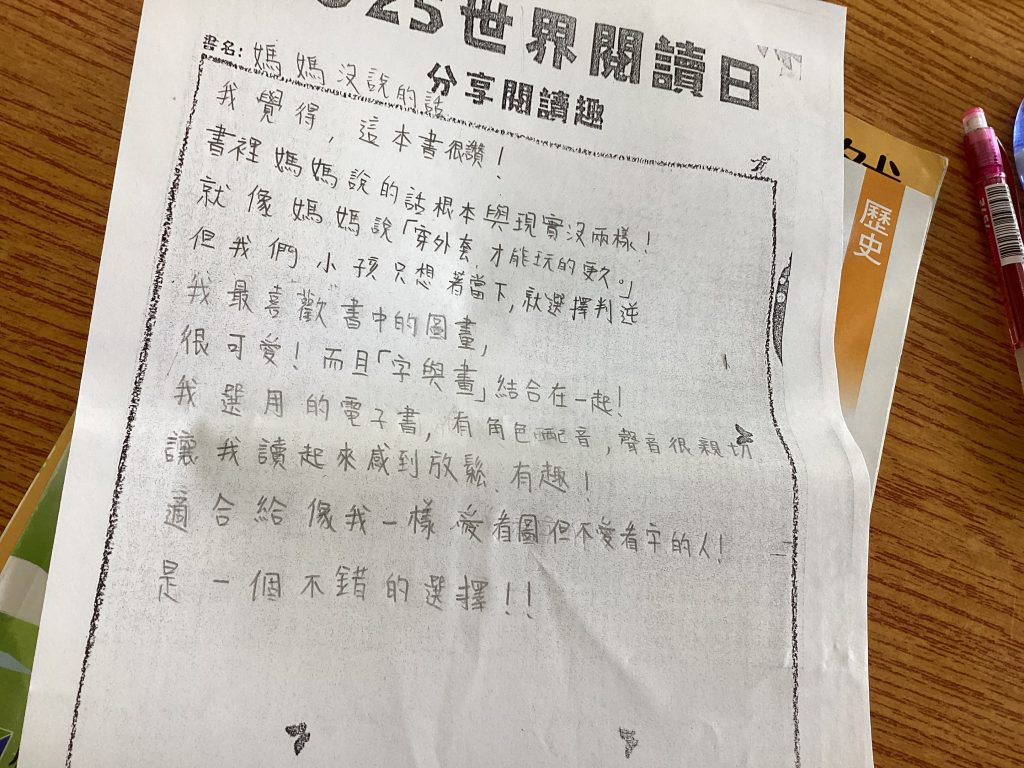 2025世界閱讀日
分享閱讀趣
書名:媽媽沒說的話
我覺得,這本書很讚!
書裡媽媽說的話根本與現實沒兩樣!
就像媽媽說「穿外套、才能玩的更久。」
但我們小孩只想着當下,就選擇判逆
我最喜歡書中的圖畫,
很可愛!而且「字與畫」結合在一起!
我選用的電子書,有角色配音,聲音很親切
讓我讀起來感到放鬆、有趣!
適合給像我一樣愛看圖但不愛看字的人!
是一個不錯的選擇!!
歷史